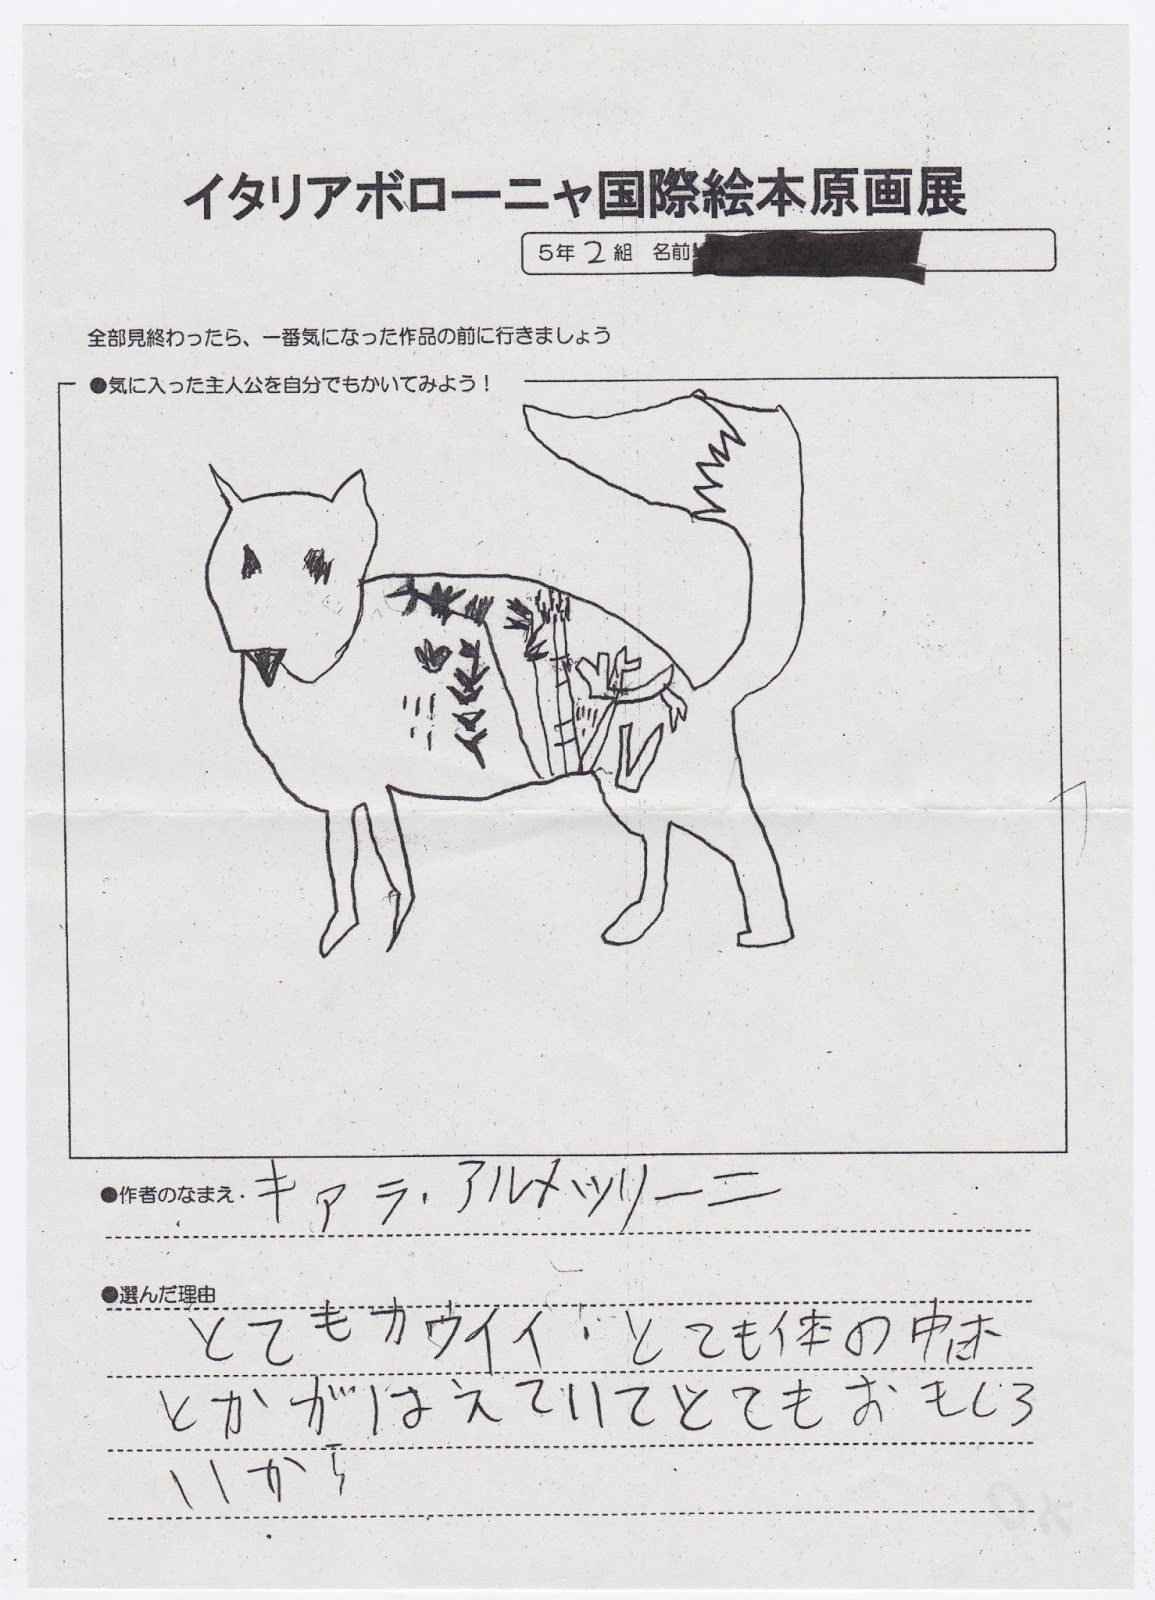 イタリアボローニャ国際絵本原画展
5年 2 組 名前
全部見終わったら、一番気になった作品の前に行きましょう
●気に入った主人公を自分でもかいてみよう！
●作者のなまえ・キアラ・アルメッリーニ
●選んだ理由
とてもカウイイ・とても体の中に木
とかがはえていてとてもおもしろ
いから